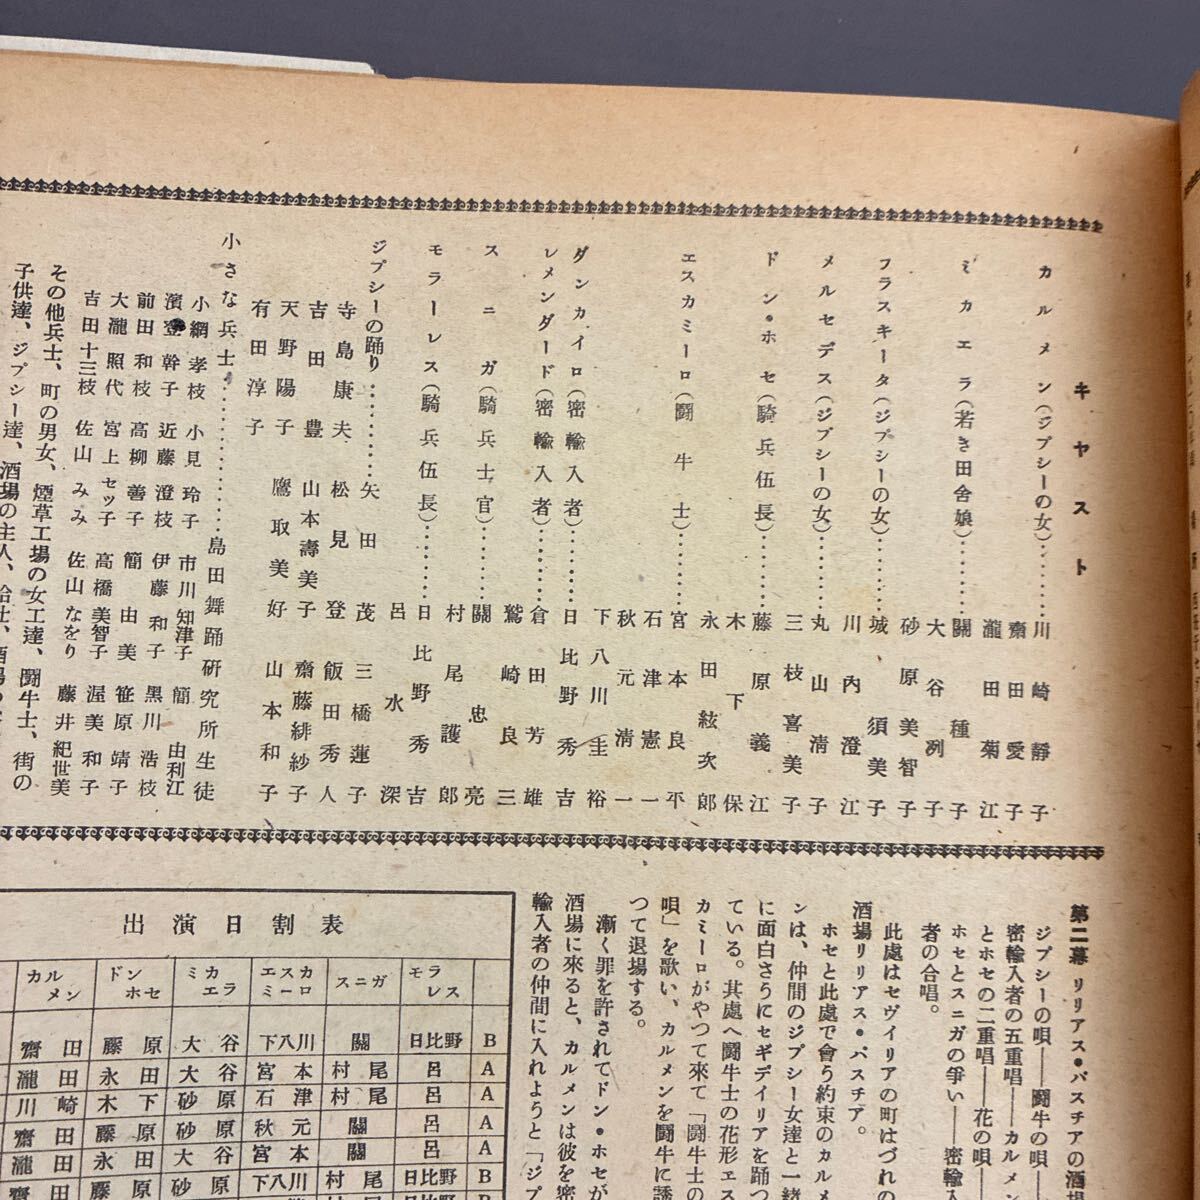 キヤスト
カルメン(ジプシーの女)………川崎靜子
齋田愛子
瀧田菊江
ミカエラ(若き田舎娘)………關種子
大谷冽子
砂原美智子
フラスキータ(ジプシーの女)………城須美子
川內澄江
メルセデス(ジプシーの女)………丸山淸子
三枝喜美子
ドン・ホセ(騎兵伍長)………藤原義江
木下保
永田絃次郎
エスカミーロ(鬪牛士)………宮本良平
石津憲一
秋元淸一
下八川圭裕
ダンカイロ(密輸入者)………日比野秀吉
レメンダード(密輸入者)………倉田芳雄
鷲崎良三
スニガ(騎兵士官)………關忠亮
村尾護郎
モラーレス(騎兵伍長)………日比野秀吉
呂水深
ジプシーの踊り………矢田茂 三橋蓮子
寺島康夫 松見登 飯田秀人
吉田豊 山本壽美子 齋藤緋紗子
天野陽子 鷹取美好 山本和子
有田淳子
小さな兵士………島田舞踊研究所生徒
小綱孝枝 小見玲子 市川知津子 簡由利江
濱登幹子 近藤澄枝 伊藤和子 黒川浩枝
前田和枝 高柳善子 簡由美 笹原靖子
大瀧照代 宮上セツ子 高橋美智子 渥美和子
吉田十三枝 佐山みみ 佐山なをり 藤井紀世美
その他兵士、町の男女、煙草工場の女工達、鬪牛士、街の
子供達、ジプシー達、酒場の主人、給仕、酒場の
第二幕 リリアス・パスチアの酒場
ジプシーの唄――鬪牛の唄――
密輸入者の五重唱――カルメ
とホセの二重唱――花の唄――
ホセとスニガの爭い――密輸入
者の合唱。
此處はセヴイリアの町はづれの
酒場リリアス・パスチア。
ホセと此處で會う約束のカルメ
ンは、仲間のジプシー女達と一緒
に面白さうにセギデイリアを踊つ
ている。其處へ鬪牛士の花形エス
カミーロがやつて來て「鬪牛士の
唄」を歌い、カルメンを鬪牛に誘
つて退場する。
漸く罪を許されてドン・ホセが
酒場に來ると、カルメンは彼を密
輸入者の仲間に入れようと「ジプ
出演日割表
カルメン ドンホセ ミカエラ エスカミーロ スニガ モラレス
齋田 藤原 大谷 下八川 關 日比野 B
瀧田 永田 大谷 宮本 村尾 呂 A
川崎 木下 砂原 石津 村尾 呂 A
齋田 藤原 砂原 秋元 關 呂 A
瀧田 永田 大谷 宮本 關 呂 A
齋田 藤原 砂原 下八川 村尾 日比野 B